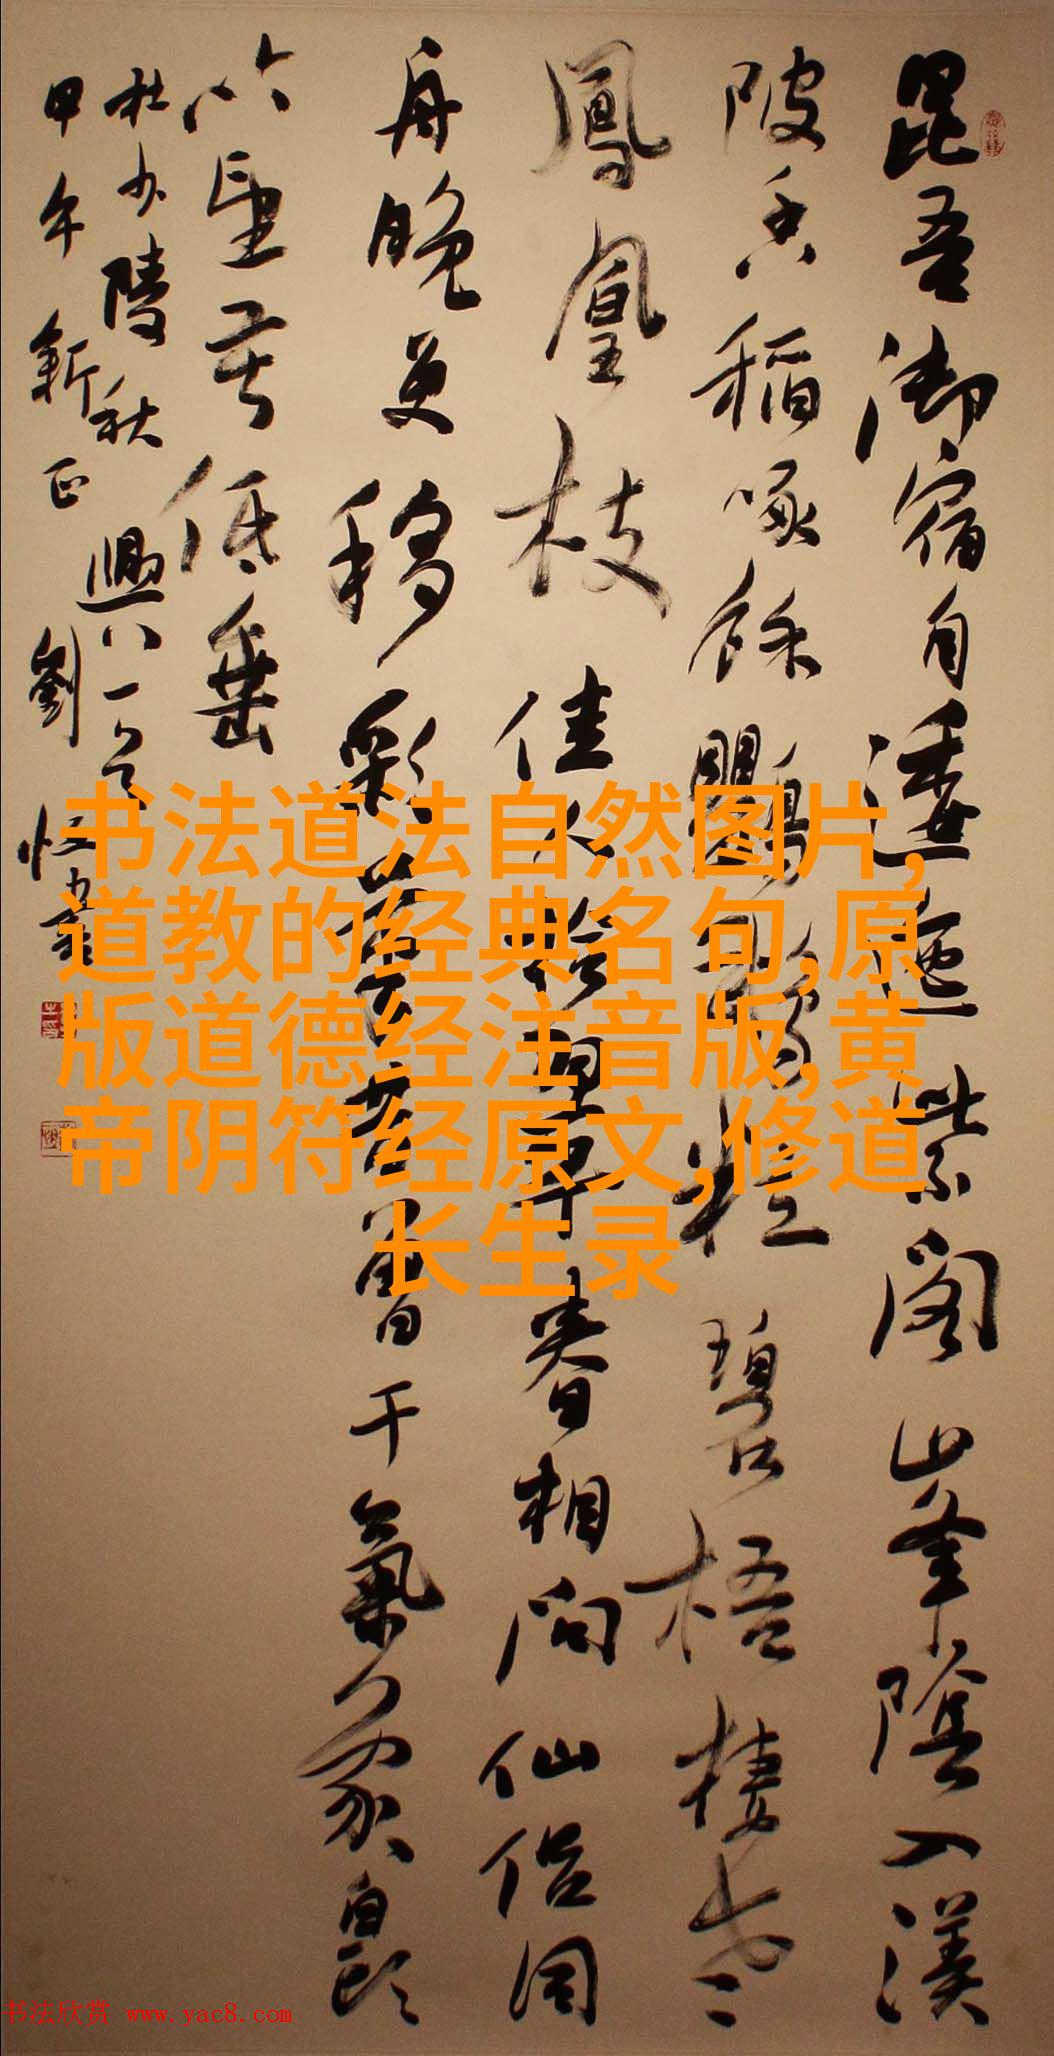 昆吾御宿自逶迤紫閣峯陰入渼
陂香稻啄餘鸚鵡粒碧梧棲老
鳳凰枝佳人拾翠春相問仙侣同
舟晚更移彩筆昔曾干氣象白頭
吟望苦低垂
杜少陵秋興八一
甲午新正劉
书法道法自然图片,
道教的经典名句,原
版道德经注音版,黄
帝阴符经原文,修道
长生录
书法欣赏 www.yac8.com